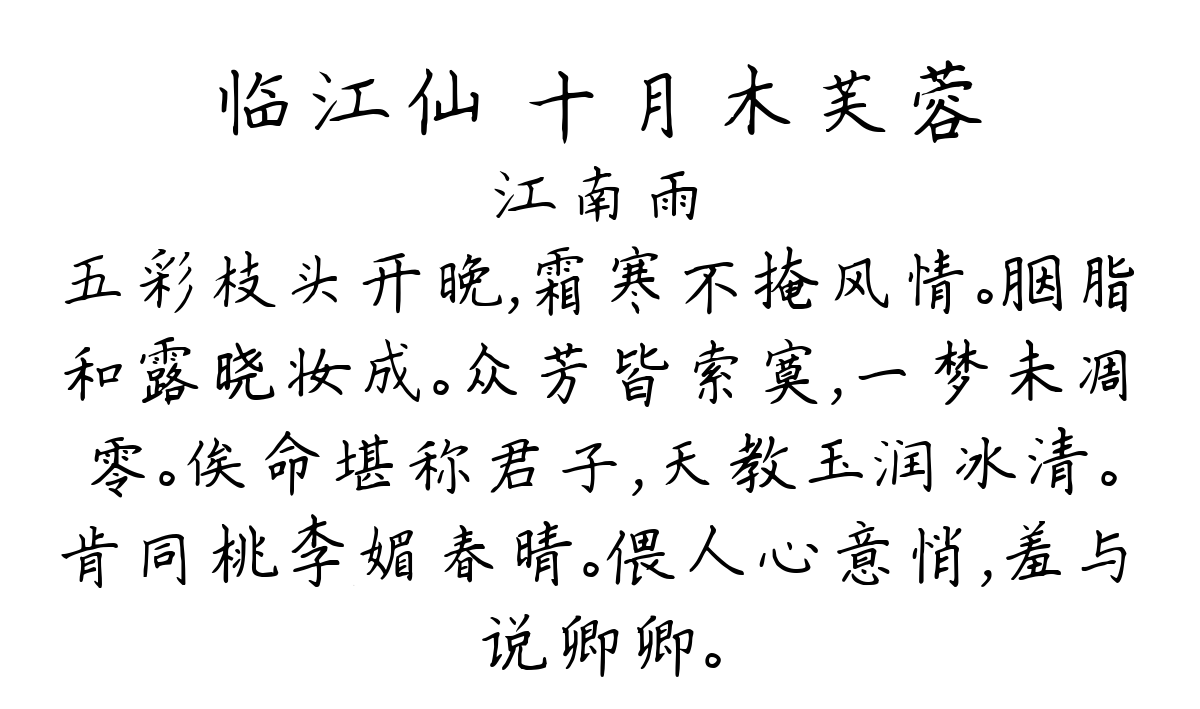 临江仙 十月木芙蓉
江南雨
五彩枝头开晚,霜寒不掩风情。胭脂
和露晓妆成。众芳皆索寞,一梦未凋
零。俟命堪称君子,天教玉润冰清。
肯同桃李媚春晴。偎人心意悄,羞与
说卿卿。